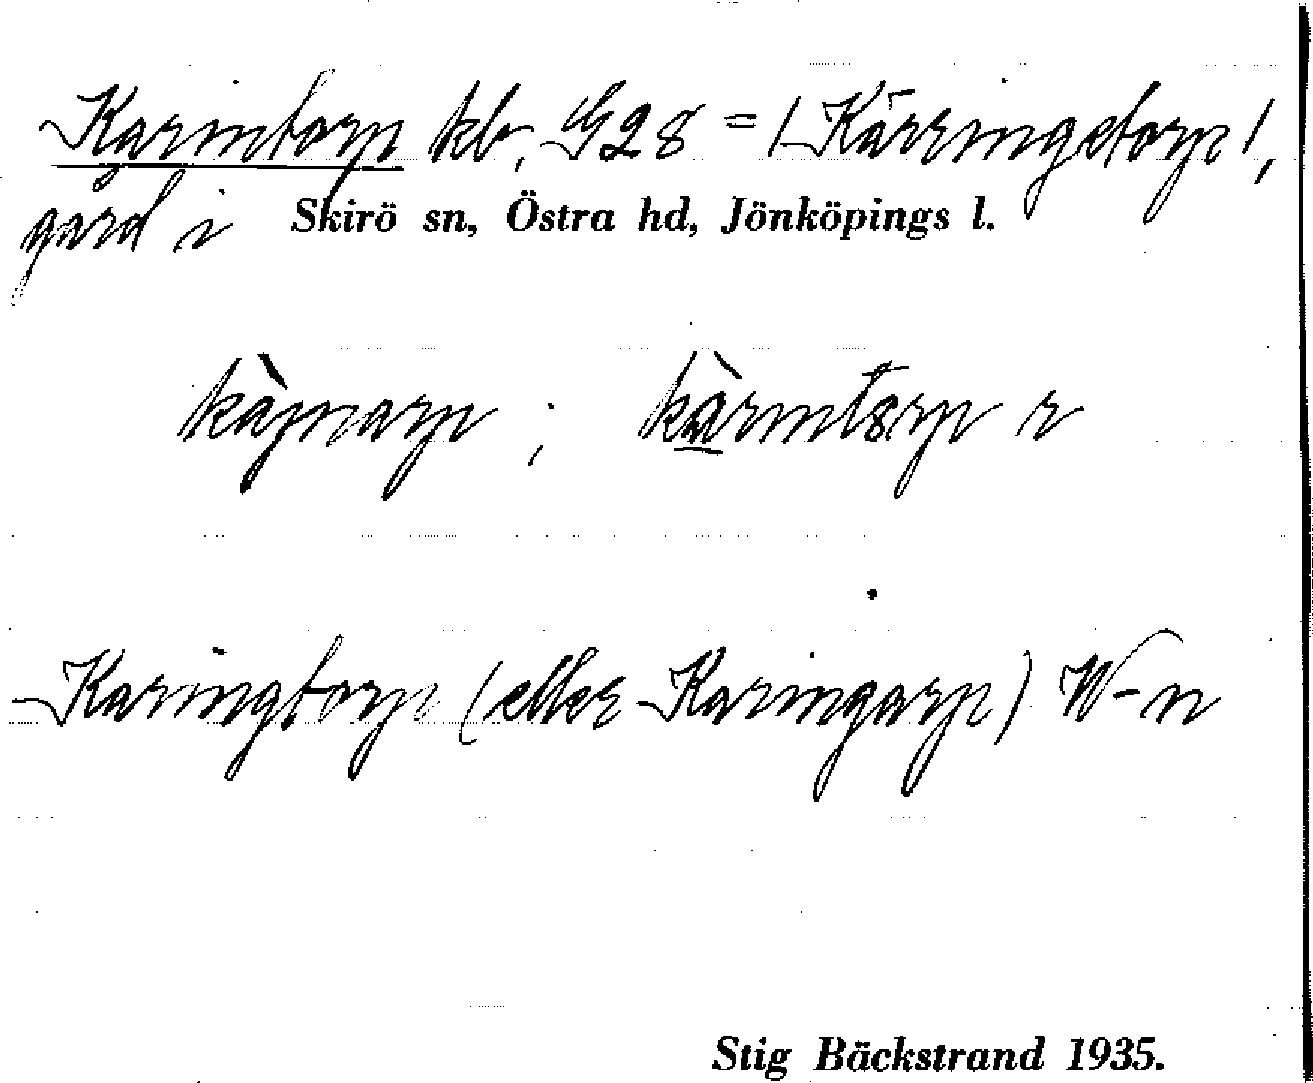 Karintorp kb, G28 = /Kärringetorp/,
gård i Skirö sn, Östra hd, Jönköpings l.
r
Karingtorp (eller Karingarp) W-n
Stig Bäckstrand 1935.